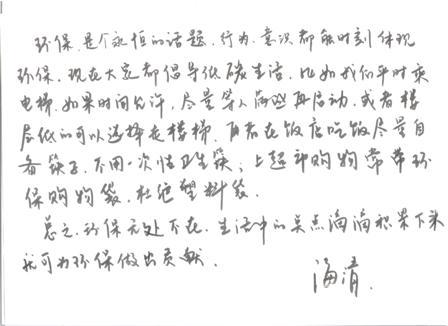 环保是个永恒的话题，行为、意识都能时刻体现
环保，现在大家都倡导低碳生活，比如我们平时乘
电梯，如果时间允许，尽量等人满些再启动，或者楼
层低的可以选择走楼梯，再者在饭店吃饭尽量自
备筷子，不用一次性卫生筷；上超市购物常带环
保购物袋，杜绝塑料袋。
总之，环保无处不在，生活中的点点滴滴积累下来
就可为环保做出贡献。
海清